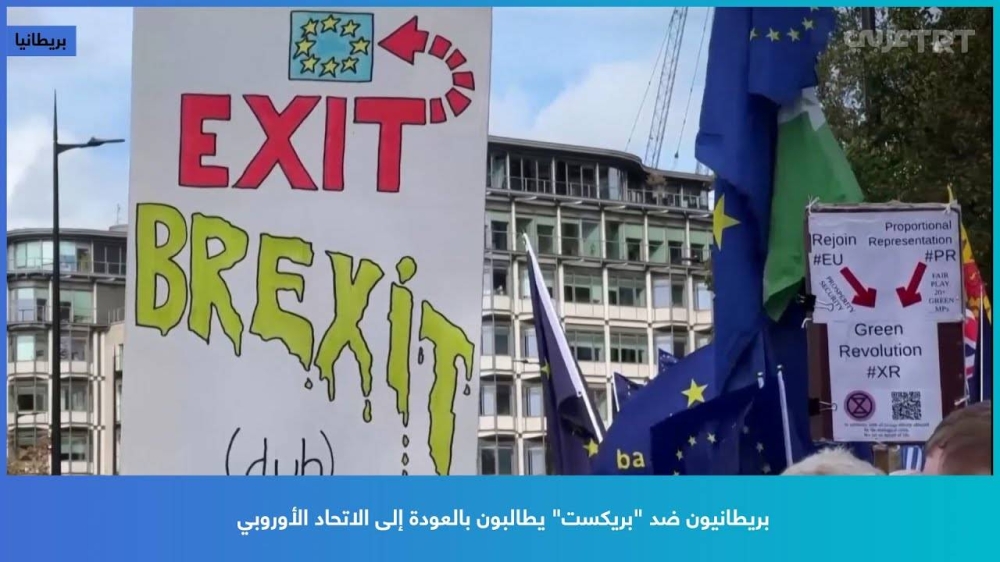 بريطانيا
TRT عربي
EXIT
BREXiT
(duh)
Rejoin
#EU
Proportional
Representation
#PR
PROSPERITY
SECURITY
FAIR
PLAY
20+
GREEN
MPs
Green
Revolution
#XR
ba
بريطانيون ضد "بريكست" يطالبون بالعودة إلى الاتحاد الأوروبي